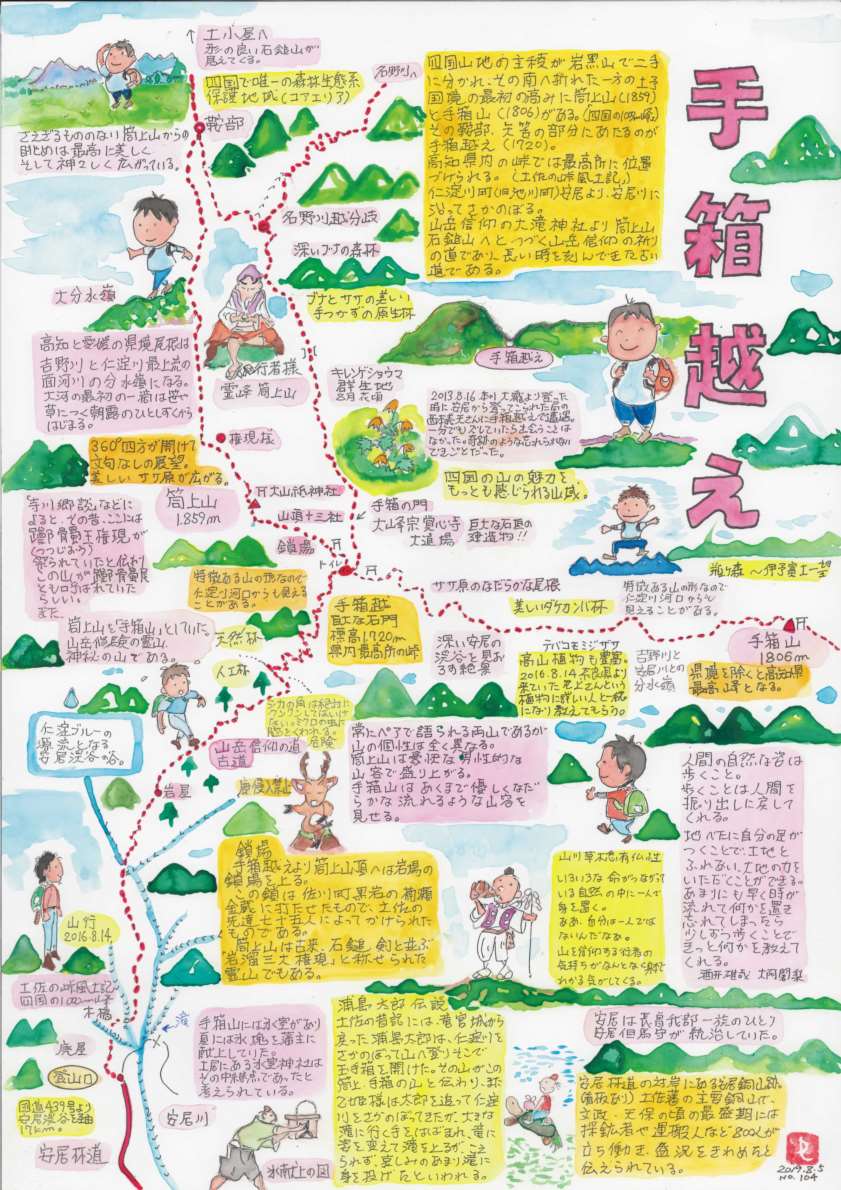 手箱越え
↑土小屋へ
形の良い石鎚山が
見えてくる。
四国で唯一の森林生態系
保護地域(コアエリア)
名野川へ
さえぎるもののない筒上山からの
眺めは最高に美しく
そして神々しく広がっている。
四国山地の主稜が岩黒山で二手
に分かれ、その南へ折れた一方の土予
国境の最初の高みに筒上山(1859)
と手箱山(1806)がある。
その鞍部、矢筈の部分にあたるのが
手箱越え(1720)。
高知県内の峠では最高所に位置
づけられる。(土佐の峠風土記)
仁淀川町(旧池川町)安居より、安居川に
沿ってさかのぼる。
山岳信仰の大滝神社より筒上山
石鎚山へとつづく山岳信仰の祈り
の道であり、長い時を刻んできた古い
道である。
鞍部
名野川越分岐
深いブナの森林
ブナとササの美しい
手つかずの原生林
大分水嶺
高知と愛媛の県境尾根は
吉野川と仁淀川最上流の
面河川の分水嶺になる。
大河の最初の一滴は笹や
草につく朝露のひとしずくから
はじまる。
行者様
霊峰筒上山
手箱越え
キレンゲショウマ
群生地
8月頃
四国の山の魅力を、
もっとも感じられる山域。
権現様
360°四方が開けて
文句なしの展望。
美しいササ原が広がる。
筒上山
1.859m
大山祇神社
山頂十三社
鎖場
トイレ
手箱の門
大山峰宗覚心寺
大道場
巨大な石垣の
建造物!!
瓶ヶ森～伊予富士一望
「寺川郷談」などに
よると、その昔、ここには
(つつじおう)
祭られていたと伝わり
この山が
とも呼ばれていた
らしい。
また
筒上山を「手箱山」としていた。
山岳修験の霊山
神秘の山である。
特徴ある山の形なので
仁淀川河口からも見える
ことがある。
手箱越
巨大な石門
標高1720m
県内最高所の峠
ササ原のなだらかな尾根
美しいダケカンバ林
特徴ある山の形なので
仁淀川河口からも
見えることがある。
手箱山
1806m
県境を除くと高知県
最高峰となる。
深い安居の
渓谷と見お
ろす絶景
テバコモミジガサ
高山植物も豊富。
植物に詳しい人と一緒
になり教えてもらう。
吉野川と
安居川との
分水嶺
天然林
人工林
危険
山岳信仰の道
古道
仁淀ブルーの
源流となる
安居渓谷の谷。
岩屋
鹿侵入禁止
常にペアで語られる両山であるが
山の個性は全く異なる。
筒上山は豪快な男性的な
山容で盛り上がる。
手箱山はあくまで優しくなだ
らかな流れるような山容を
見せる。
人間の自然な姿は
歩くこと。
歩くことは人間を
振り出しに戻して
くれる。
地べたに自分の足が
つくことで、土地と
ふれあい、土地の力を
いただくことができる。
あまりにも早く時が
流れて何かを置き
忘れてしまったら
少しずつ歩くことで
きっと何かを教えて
くれる。
酒井雄哉 大阿闍梨
鎖場
手箱越えより筒上山頂へは岩場の
鎖場を上る。
この鎖は佐川町黒岩の
金蔵に打たせたもので、土佐の
先達七十五人によってかけられた
ものである。
筒上山は古来、石鎚、剣と並ぶ
と称せられた
霊山でもある。
山川草木悉有仏性
いろいろな命がつながって
いる自然の中に一人で
身を置く。
ああ、自分は一人では
ないんだなあ。
山を信仰する行者の
気持ちがなんとなく身近
かる気がしてくる。
山行
2016.8.14.
土佐の峠風土記
木橋
廃屋
登山口
国道439号より
安居渓谷を経由
17km。
安居林道
滝
安居川
手箱山には氷室があり
夏には氷塊を藩主に
献上していた。
土居にある氷室神社は
その中継点であったと
考えられている。
氷献上の図
浦島太郎伝説
土佐の昔記には、竜宮城から
戻った浦島太郎は、仁淀川を
さかのぼって山へ登りそこで
玉手箱を開けた。その山がこの
筒上、手箱の山と伝わり、また
乙姫様は太郎を追って仁淀
川をさかのぼってきたが、大きな
滝に行く手をはばまれ、竜に
姿を変えて滝を上るが、こえ
られず、悲しみのあまり滝に
身を投げたといわれる。
安居は長曽我部一族のひとり
安居但馬守が統治していた。
安居林道の対岸にある安居銅山跡。
土佐藩の主要銅山で、
文政、天保の頃の最盛期には
採鉱者や運搬人など800人が
立ち働き、盛況をきわめたと
伝えられている。
2019.8.5
NO.104